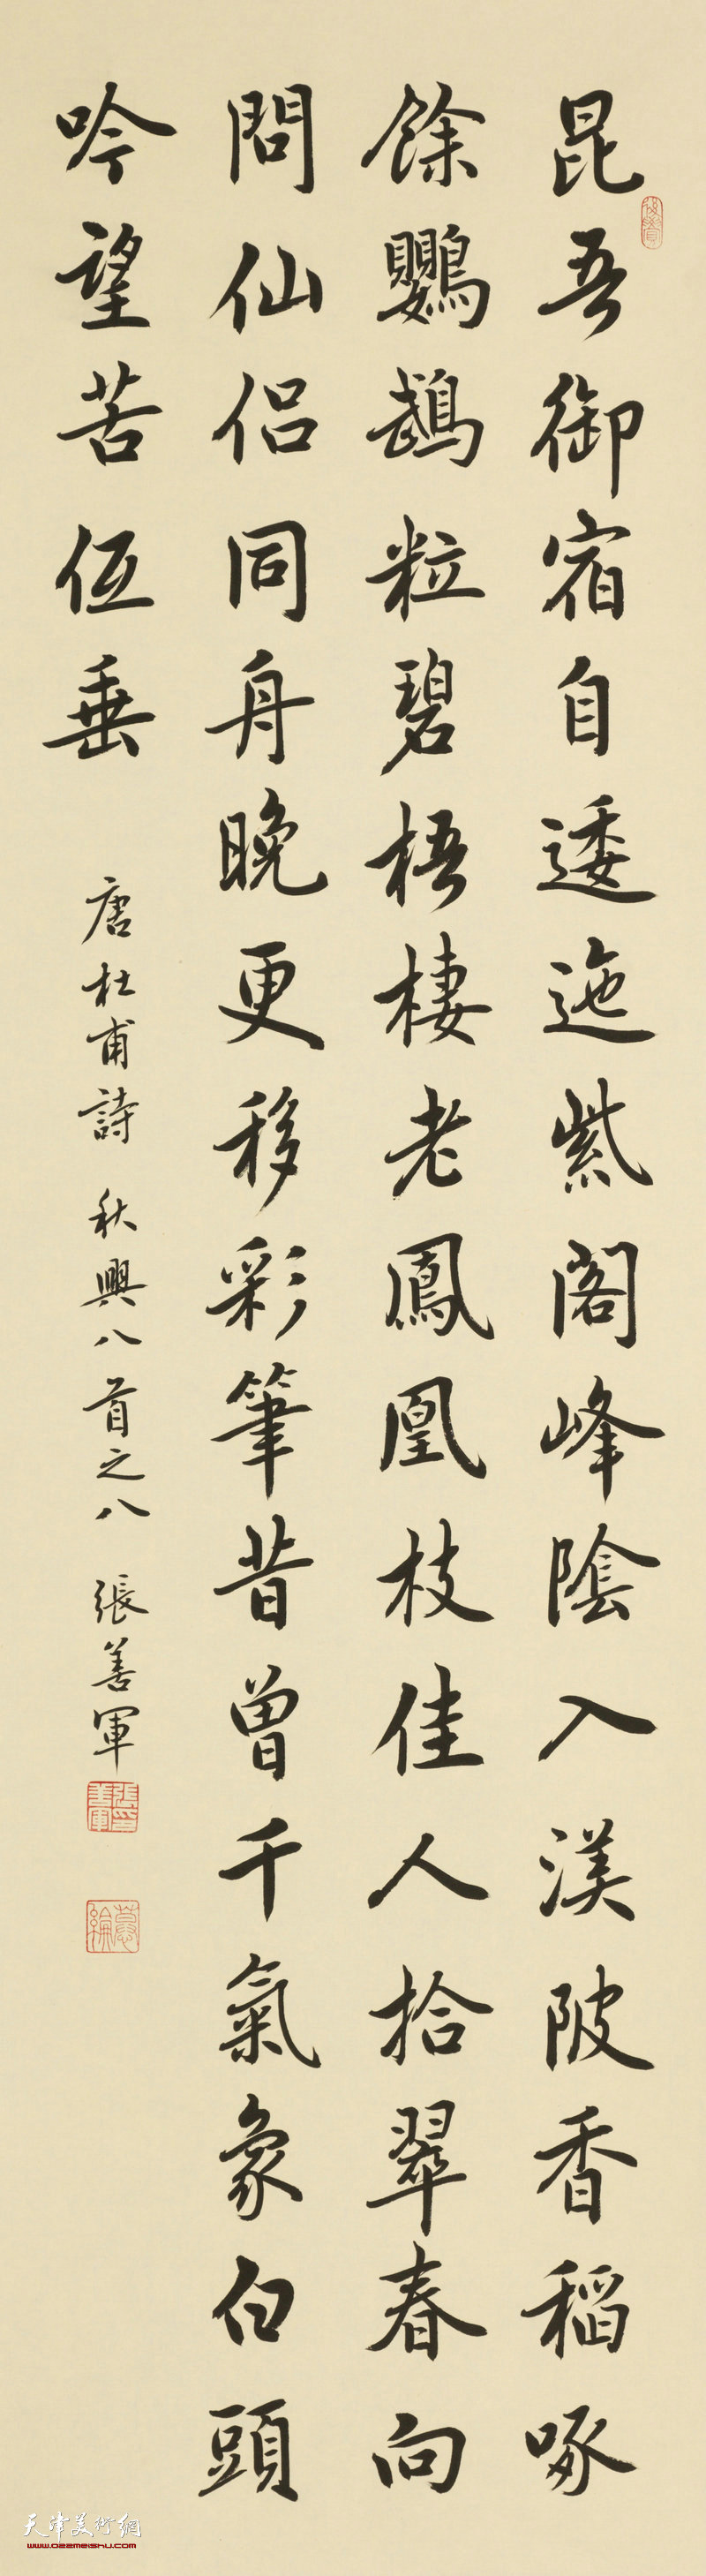 昆吾御宿自逶迤紫閣峰陰入渼陂香稻啄
餘鸚鵡粒碧梧棲老鳳凰枝佳人拾翠春向
問仙侣同舟晚更移彩筆昔曾干氣象白頭
吟望苦低垂
唐杜甫詩 秋興八首之八 張善軍
張善軍印
天津美術網
www.022meishu.com